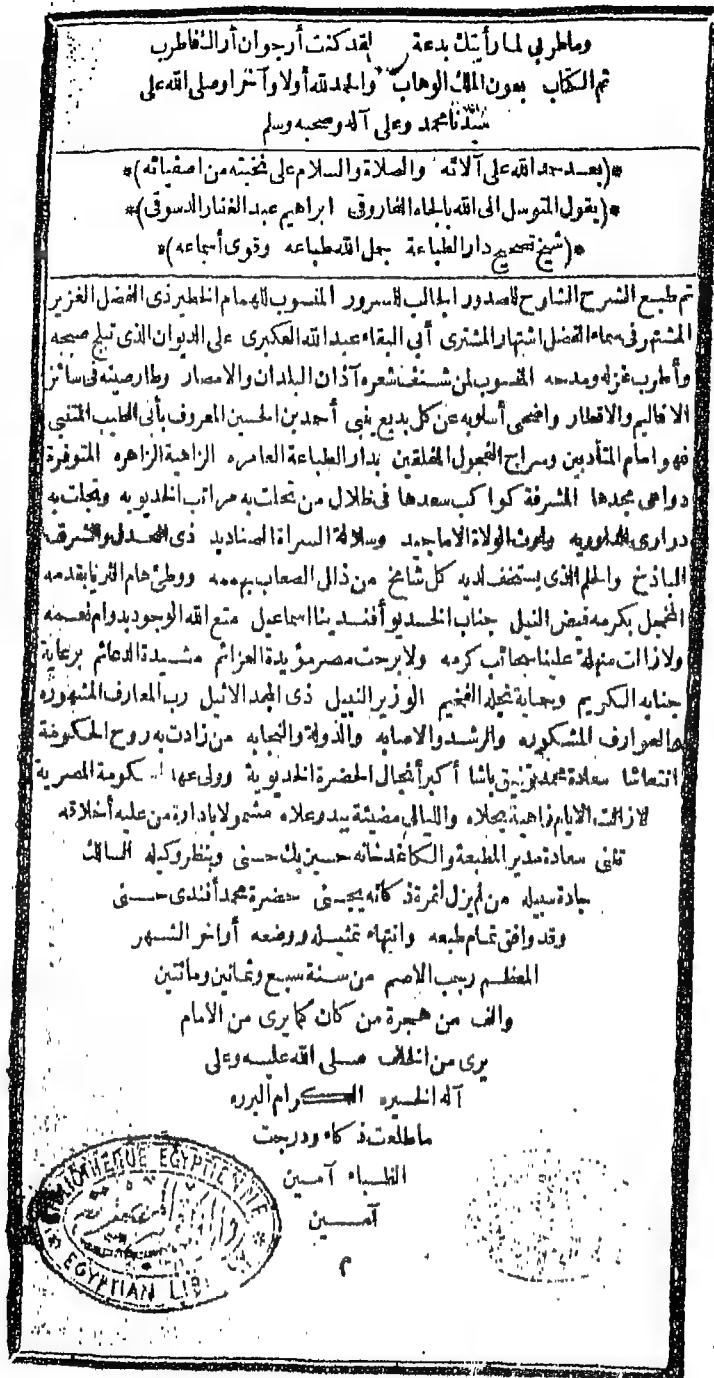 وما طربي لما رأيتك بدعة لقد كنت أرجو ان أراك فاطرب
تم الكتاب بعون الملك الوهاب والحمد لله أولا وآخرا وصلى الله على
سيدنا محمد وعلى آله وصحبه وسلم
*(بعد حمد الله على آلائه والصلاة والسلام على نخبته من اصفيائه)*
*(يقول المتوسل الى الله بالجاه الفاروقى ابراهيم عبد الغفار الدسوقى)*
*(شيخ تصحيح دار الطباعة جمل الله طباعه وقوى أسماعه)*
تم طبع الشرح الشارح للصدور الجالب للسرور المنسوب للهمام الخطير ذى الفضل الغزير
المشتهر فى سماء الفضل اشتهار المشترى أبى البقاء عبد الله العكبرى على الديوان الذى تبلج صبحه
وأطرب غزله ومدحه المنسوب لمن شنفت شعره آذان البلدان والامصار وطار صيته فى سائر
الاقاليم والاقطار واضحى أسلوبه عن كل بديع ينبى أحمد بن الحسين المعروف بأبى الطيب المتنبى
فهو امام المتأدبين وسراج الفحول المفلقين بدار الطباعة العامره الزاهية الزاهره المتوفرة
دواعى مجدها المشرقة كواكب سعدها فى ظلال من تحلت به مراتب الخديويه وتجلت به
درارى الداوريه وارث الولاة الاماجد وسلالة السراة الصناديد ذى المجد والشرف
الباذخ والحلم الذى يستخف لديه كل شامخ من ذلل الصعاب بهممه ووطئ هام الثريا بقدمه
المخجل بكرمه فيض النيل جناب الخديو أفندينا اسماعيل متع الله الوجود بدوام نعمه
ولا زالت منهلة علينا سحائب كرمه ولا برحت مصر مؤيدة العزائم مشيدة الدعائم برعاية
جنابه الكريم وبحماية نجله الفخيم الوزير النبيل ذى المجد الاثيل رب المعارف المشهوره
والعوارف المشكوره والرشد والاصابه والدولة والنجابه من زادت به روح الحكومة
انتعاشا سعادة محمد توفيق باشا أكبر أنجال الحضرة الخديوية وولى عهد الحكومة المصرية
لا زالت الايام زاهية بحلاه والليالى مضيئة ببدر علاه مشمولا بادارة من عليه أخلاقه
تثنى سعادة مدير المطبعة والكاغدخانه حسين بك حسنى وبنظر وكيله السالك
جادة سبيله من لم يزل ثمرة ذكائه يجتنى حضرة محمد أفندى حسنى
وقد وافق تمام طبعه وانتهاء تمثيله ووضعه أواخر الشهر
المعظم رجب الاصم من سنة سبع وثمانين ومائتين
والف من هجرة من كان كما يرى من الامام
يرى من الخلف صلى الله عليه وعلى
آله الخيره الكرام البرره
ما طلعت ذكاء ودرجت
الظباء آمين
آمين
م
BIBLIOTHEQUE EGYPTIENNE
EGYPTIAN LIB